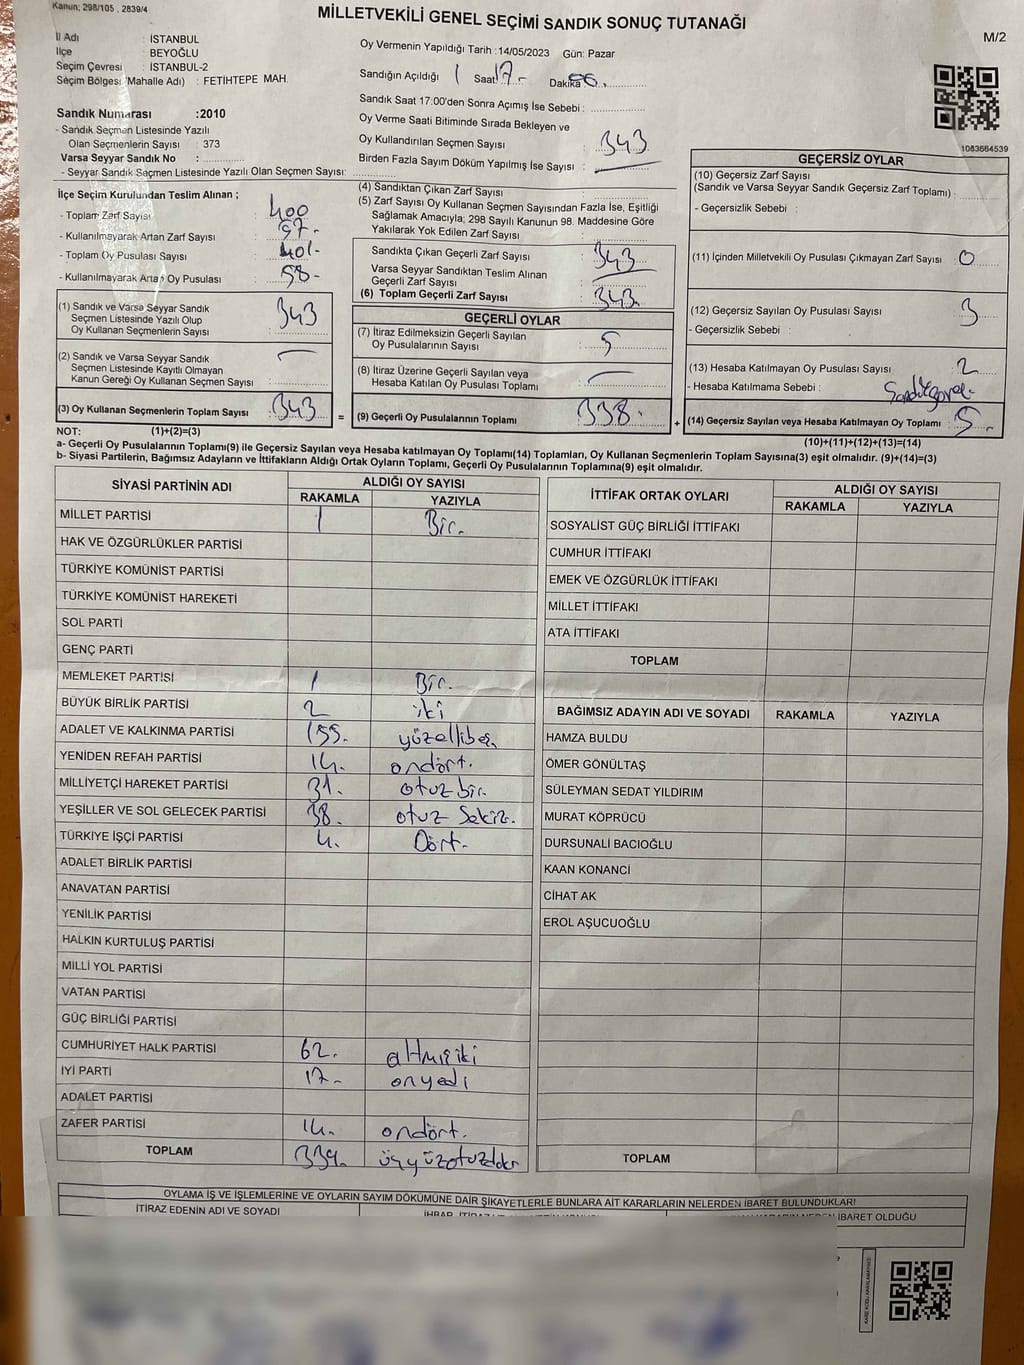 Kanun; 298/105 , 2839/4
MİLLETVEKİLİ GENEL SEÇİMİ SANDIK SONUÇ TUTANAĞI
M/2
İl Adı : İSTANBUL
İlçe : BEYOĞLU
Seçim Çevresi : İSTANBUL-2
Seçim Bölgesi (Mahalle Adı) : FETİHTEPE MAH.
Oy Vermenin Yapıldığı Tarih :14/05/2023 Gün: Pazar
Sandığın Açıldığı Saat 17- Dakika
Sandık Saat 17:00'den Sonra Açımış İse Sebebi :
Oy Verme Saati Bitiminde Sırada Bekleyen ve
Oy Kullandırılan Seçmen Sayısı : 343
Birden Fazla Sayım Döküm Yapılmış İse Sayısı :
Sandık Numarası :2010
- Sandık Seçmen Listesinde Yazılı
Olan Seçmenlerin Sayısı : 373
Varsa Seyyar Sandık No :
- Seyyar Sandık Saçmen Listesinde Yazılı Olan Seçmen Sayısı:
1083664539
İlçe Seçim Kurulundan Teslim Alınan ;
- Toplam Zarf Sayısı : 400
- Kullanılmayarak Artan Zarf Sayısı : 57.
- Toplam Oy Pusulası Sayısı : 401-
- Kullanılmayarak Artan Oy Pusulası : 58-
(1) Sandık ve Varsa Seyyar Sandık
Seçmen Listesinde Yazılı Olup
Oy Kullanan Seçmenlerin Sayısı : 343
(2) Sandık ve Varsa Seyyar Sandık
Seçmen Listesinde Kayıtlı Olmayan
Kanun Gereği Oy Kullanan Seçmen Sayısı :
(3) Oy Kullanan Seçmenlerin Toplam Sayısı : 343 =
(4) Sandıktan Çıkan Zarf Sayısı
(5) Zarf Sayısı Oy Kullanan Seçmen Sayısından Fazla İse, Eşitliği
Sağlamak Amacıyla; 298 Sayılı Kanunun 98. Maddesine Göre
Yakılarak Yok Edilen Zarf Sayısı :
Sandıkta Çıkan Geçerli Zarf Sayısı : 343
Varsa Seyyar Sandıktan Teslim Alınan
Geçerli Zarf Sayısı :
(6) Toplam Geçerli Zarf Sayısı : 343
GEÇERLİ OYLAR
(7) İtiraz Edilmeksizin Geçerli Sayılan
Oy Pusulalarının Sayısı : 5
(8) İtiraz Üzerine Geçerli Sayılan veya
Hesaba Katılan Oy Pusulası Toplamı :
(9) Geçerli Oy Pusulalarının Toplamı : 338. +
GEÇERSİZ OYLAR
(10) Geçersiz Zarf Sayısı
(Sandık ve Varsa Seyyar Sandık Geçersiz Zarf Toplamı) :
- Geçersizlik Sebebi :
(11) İçinden Milletvekili Oy Pusulası Çıkmayan Zarf Sayısı : 0
(12) Geçersiz Sayılan Oy Pusulası Sayısı : 3
- Geçersizlik Sebebi :
(13) Hesaba Katılmayan Oy Pusulası Sayısı : 2
- Hesaba Katılmama Sebebi :
(14) Geçersiz Sayılan veya Hesaba Katılmayan Oy Toplamı : 5.
NOT: (1)+(2)=(3)
(10)+(11)+(12)+(13)=(14)
a- Geçerli Oy Pusulalarının Toplamı(9) ile Geçersiz Sayılan veya Hesaba katılmayan Oy Toplamı(14) Toplamları, Oy Kullanan Seçmenlerin Toplam Sayısına(3) eşit olmalıdır. (9)+(14)=(3)
b- Siyasi Partilerin, Bağımsız Adayların ve İttifakların Aldığı Ortak Oyların Toplamı, Geçerli Oy Pusulalarının Toplamına(9) eşit olmalıdır.
SİYASİ PARTİNİN ADI ALDIĞI OY SAYISI
RAKAMLA YAZIYLA
MİLLET PARTİSİ 1 Bir.
HAK VE ÖZGÜRLÜKLER PARTİSİ
TÜRKİYE KOMÜNİST PARTİSİ
TÜRKİYE KOMÜNİST HAREKETİ
SOL PARTİ
GENÇ PARTİ
MEMLEKET PARTİSİ 1 Bir.
BÜYÜK BİRLİK PARTİSİ 2 iki
ADALET VE KALKINMA PARTİSİ 155. yüzellibeş
YENİDEN REFAH PARTİSİ 14. ondört.
MİLLİYETÇİ HAREKET PARTİSİ 31. otuz bir.
YEŞİLLER VE SOL GELECEK PARTİSİ 38. otuz Sekiz.
TÜRKİYE İŞÇİ PARTİSİ 4. Dört.
ADALET BİRLİK PARTİSİ
ANAVATAN PARTİSİ
YENİLİK PARTİSİ
HALKIN KURTULUŞ PARTİSİ
MİLLİ YOL PARTİSİ
VATAN PARTİSİ
GÜÇ BİRLİĞİ PARTİSİ
CUMHURİYET HALK PARTİSİ 62. altmış iki
İYİ PARTİ 17- onyedi
ADALET PARTİSİ
ZAFER PARTİSİ 14. ondört.
TOPLAM 339.
İTTİFAK ORTAK OYLARI ALDIĞI OY SAYISI
RAKAMLA YAZIYLA
SOSYALİST GÜÇ BİRLİĞİ İTTİFAKI
CUMHUR İTTİFAKI
EMEK VE ÖZGÜRLÜK İTTİFAKI
MİLLET İTTİFAKI
ATA İTTİFAKI
TOPLAM
BAĞIMSIZ ADAYIN ADI VE SOYADI RAKAMLA YAZIYLA
HAMZA BULDU
ÖMER GÖNÜLTAŞ
SÜLEYMAN SEDAT YILDIRIM
MURAT KÖPRÜCÜ
DURSUNALİ BACIOĞLU
KAAN KONANCİ
CİHAT AK
EROL AŞUCUOĞLU
TOPLAM
OYLAMA İŞ VE İŞLEMLERİNE VE OYLARIN SAYIM DÖKÜMÜNE DAİR ŞİKAYETLERLE BUNLARA AİT KARARLARIN NELERDEN İBARET BULUNDUKLARI
İTİRAZ EDENİN ADI VE SOYADI
İBARET OLDUĞU